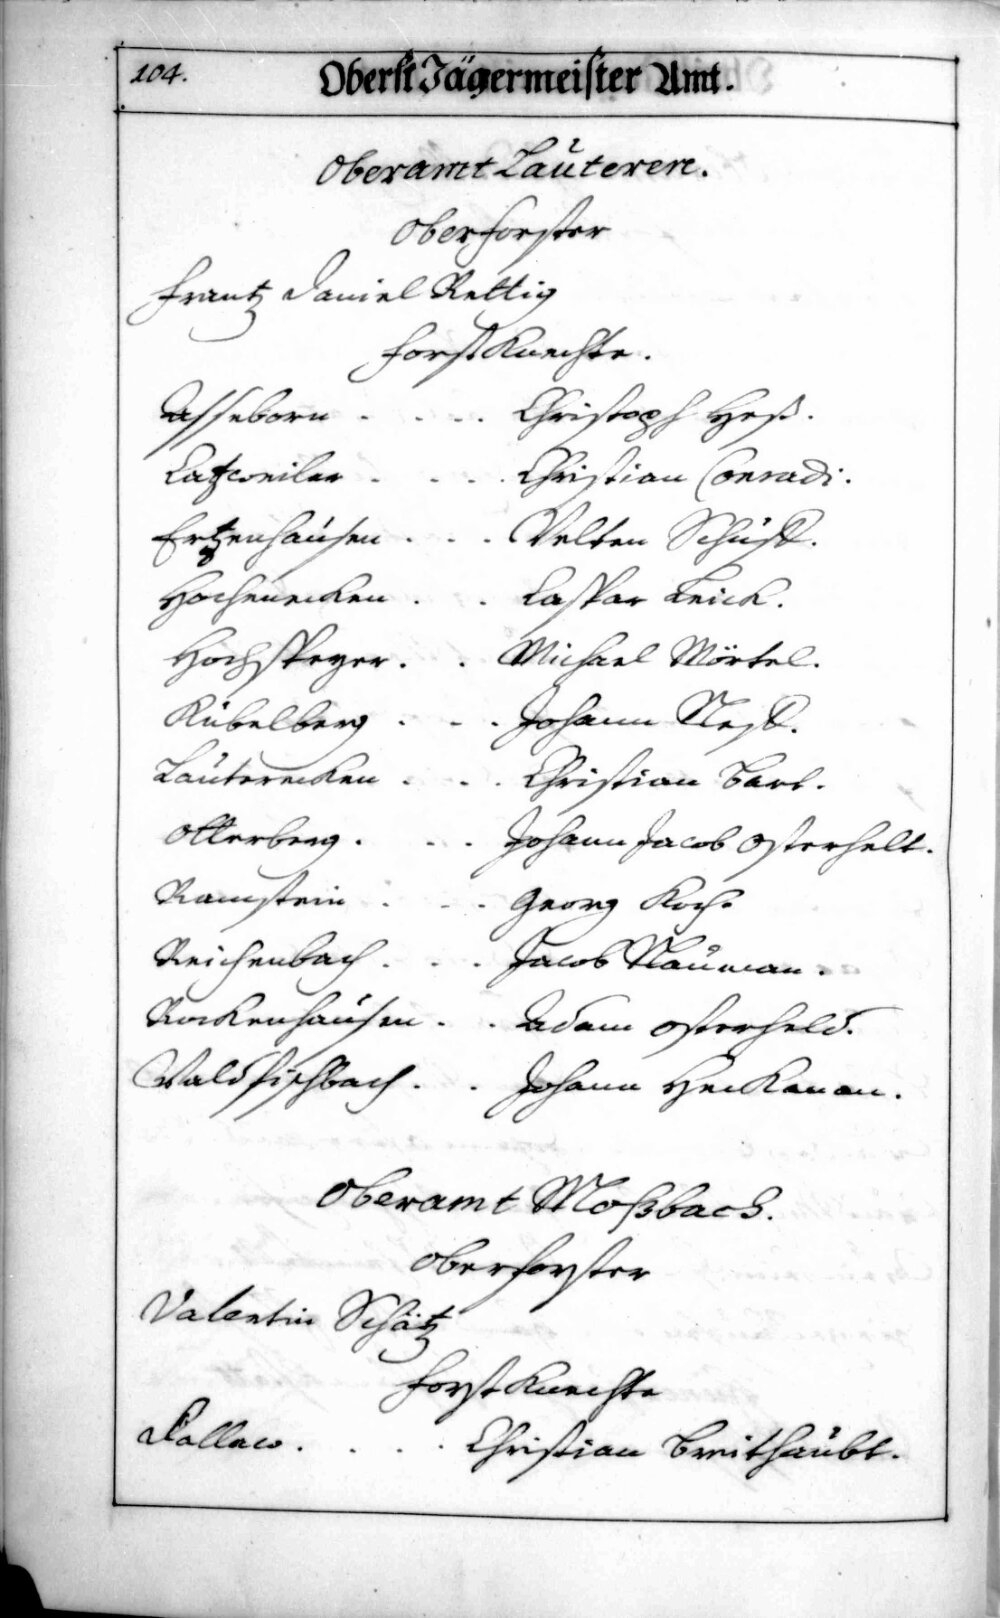 104. Oberst Jägermeister Amt.
Oberamt Lautteren.
Oberforster
Frantz Daniel Rettig
Forst Knechte.
Asseborn . . . . Christoph Heß.
Catzweiler . . . . Christian Conradi.
Ertzenhausen . . . Velten Schüst.
Hochenecken . . Caspar Leick.
Hochspeyer . . Michael Mörtel.
Kübelberg . . . Johann Nest.
Lauterecken . . . Christian Barl.
Otterberg . . . Johann Jacob Osterhelt.
Ramstein . . . Georg Koch.
Reichenbach . . . Jacob Nauman.
Rockenhausen . . Adam Osterheld.
Waldfischbach . . Johann Heckman.
Oberamt Moßbach.
Oberforster
Valentin Schätz
Forst Knechte
Dallaw . . . . Christian Breithaubt.